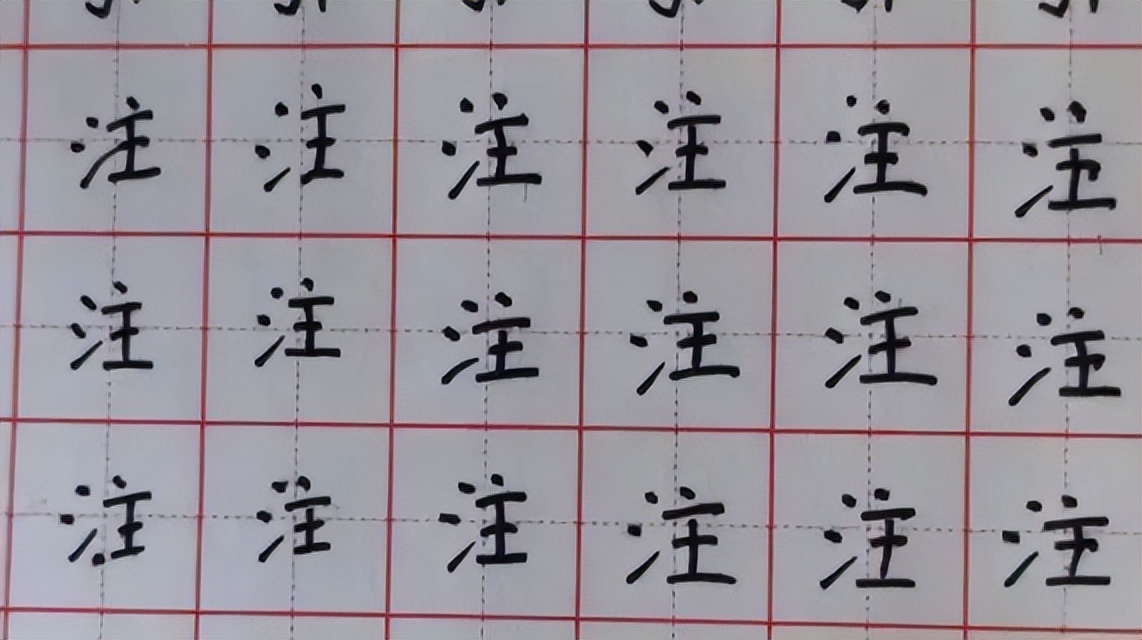 注注注注注注
注注注注注注
注注注注注注